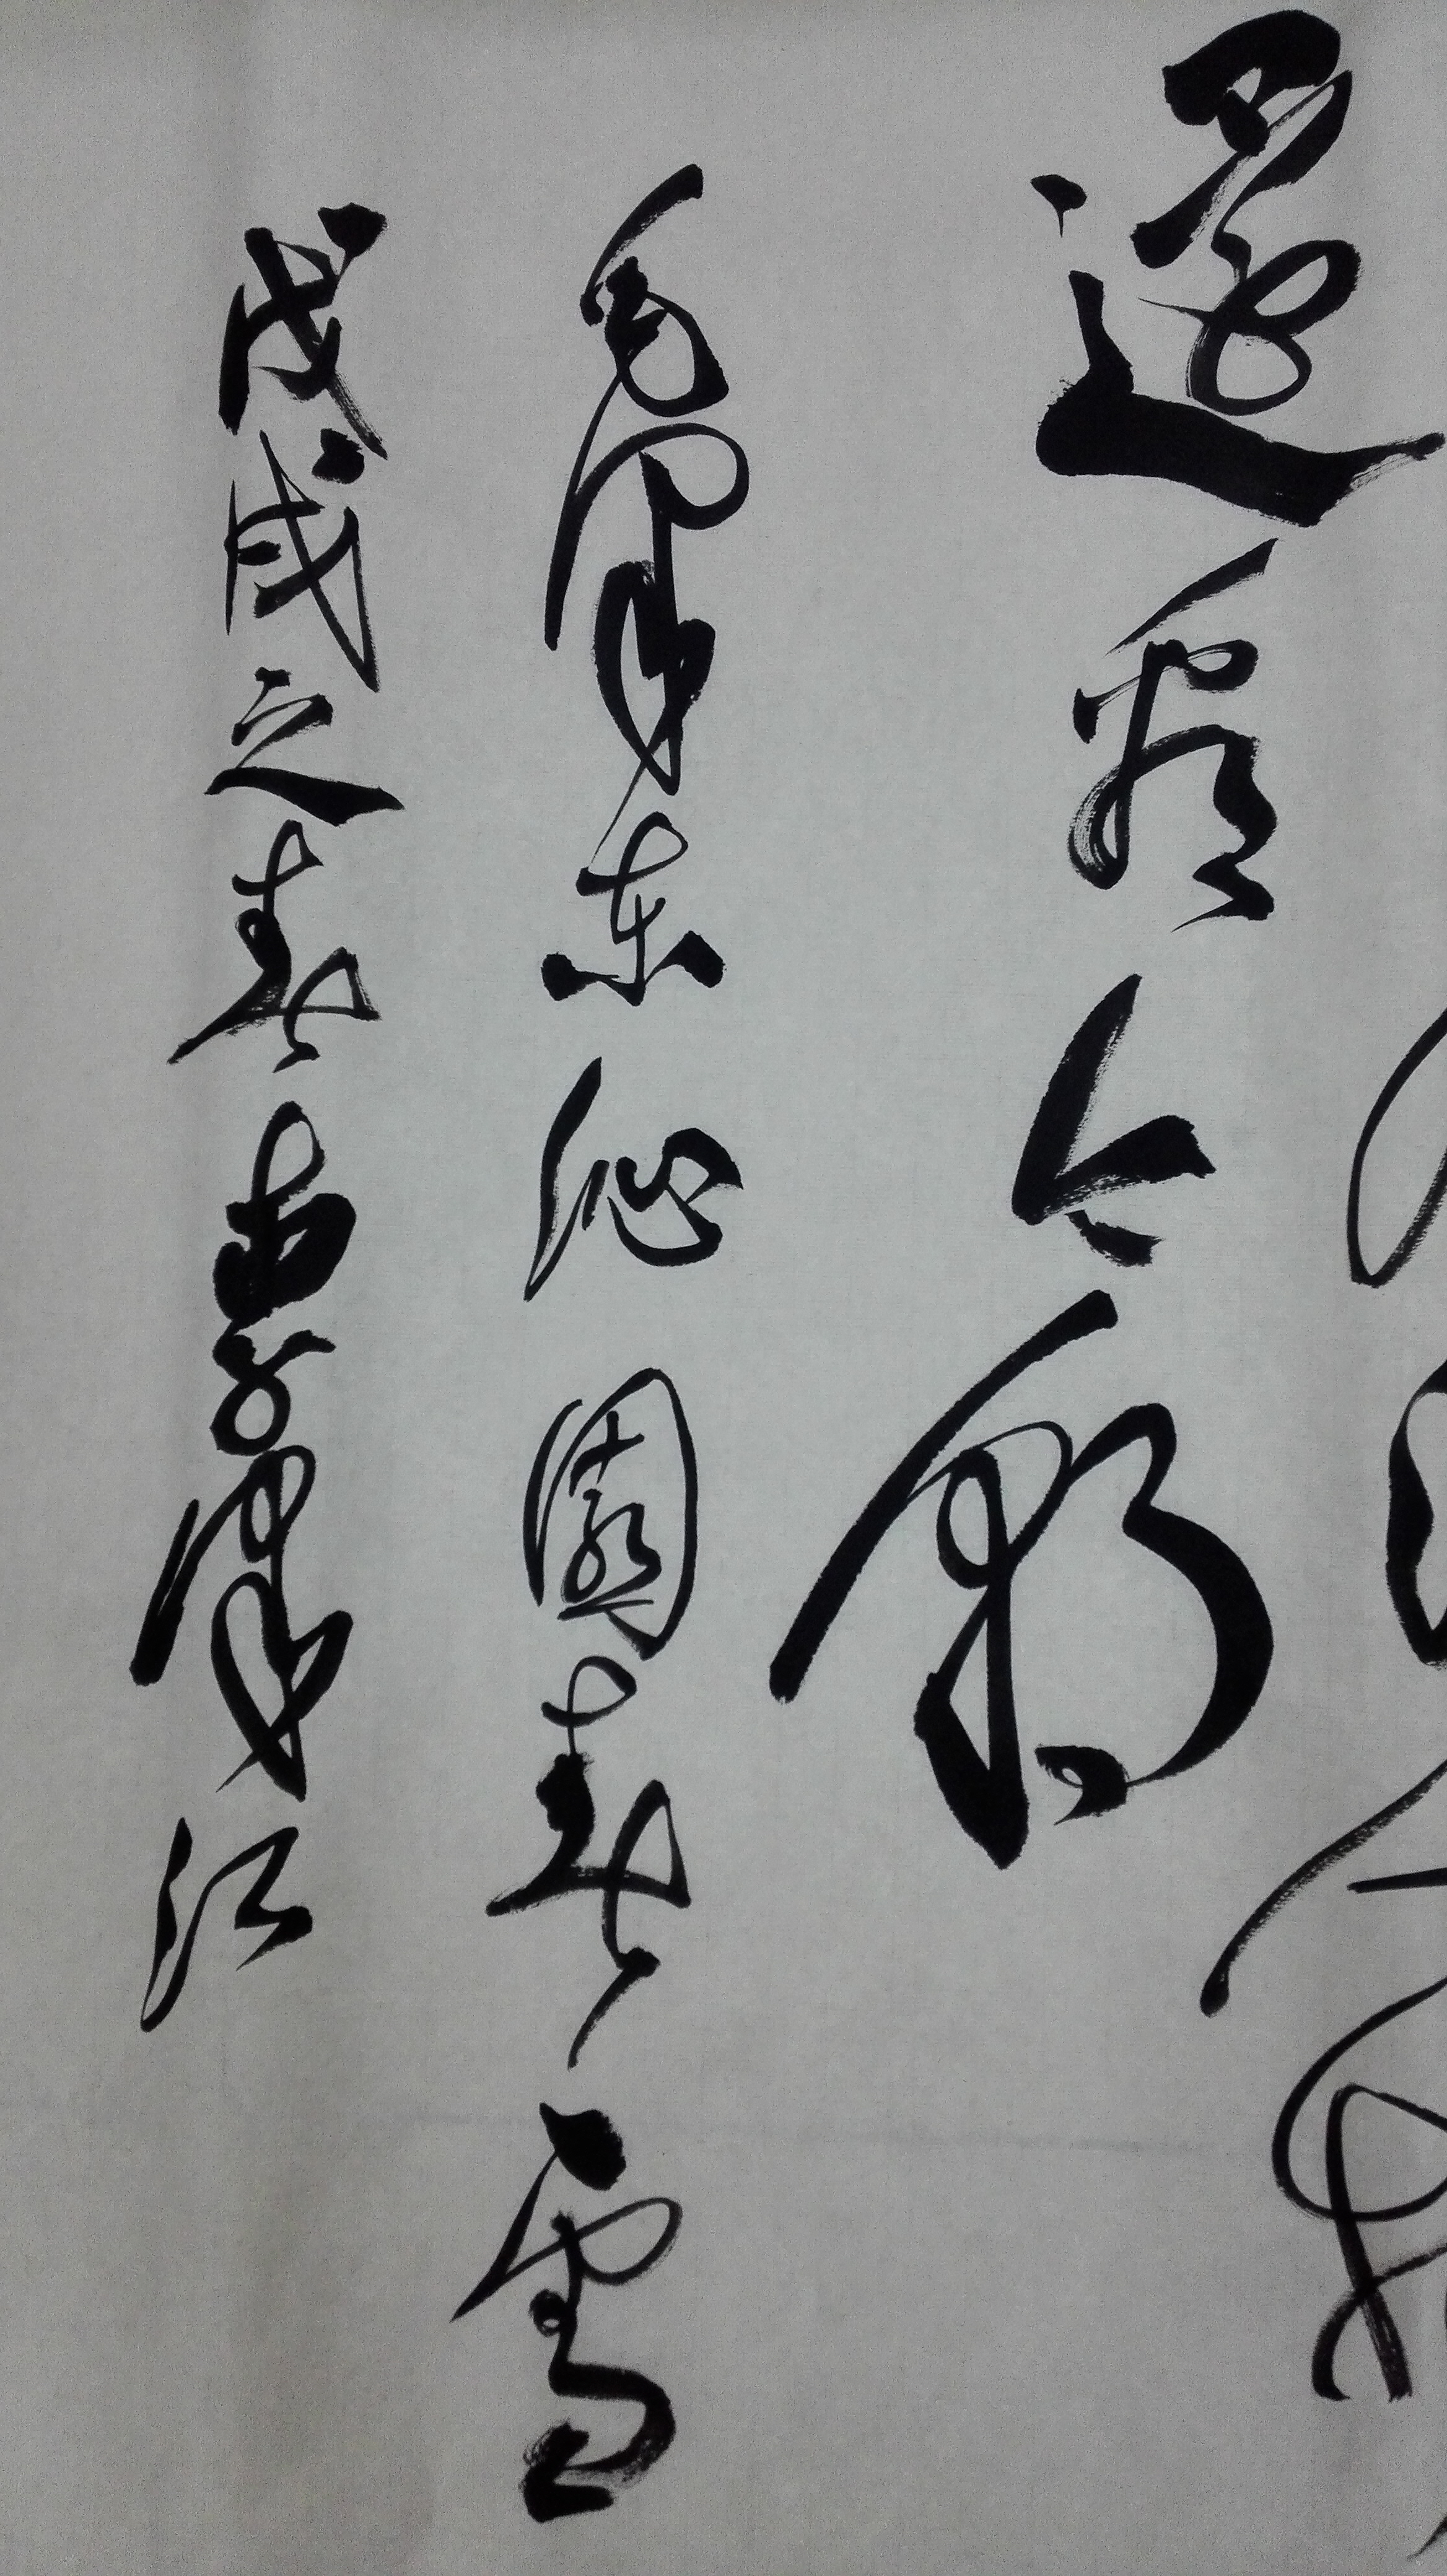 還看今朝
毛澤东沁園春雪
戊戌之春李澤江